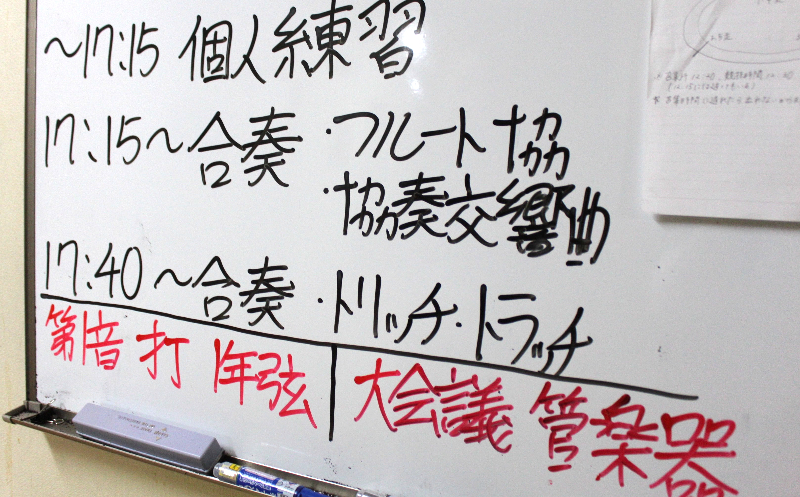 ~17:15 個人練習
17:15~合奏 ・フルート協
・協奏交響曲
17:40~合奏 ・トリッチ・トラッチ
第1音 打 1年弦
大会議 管楽器